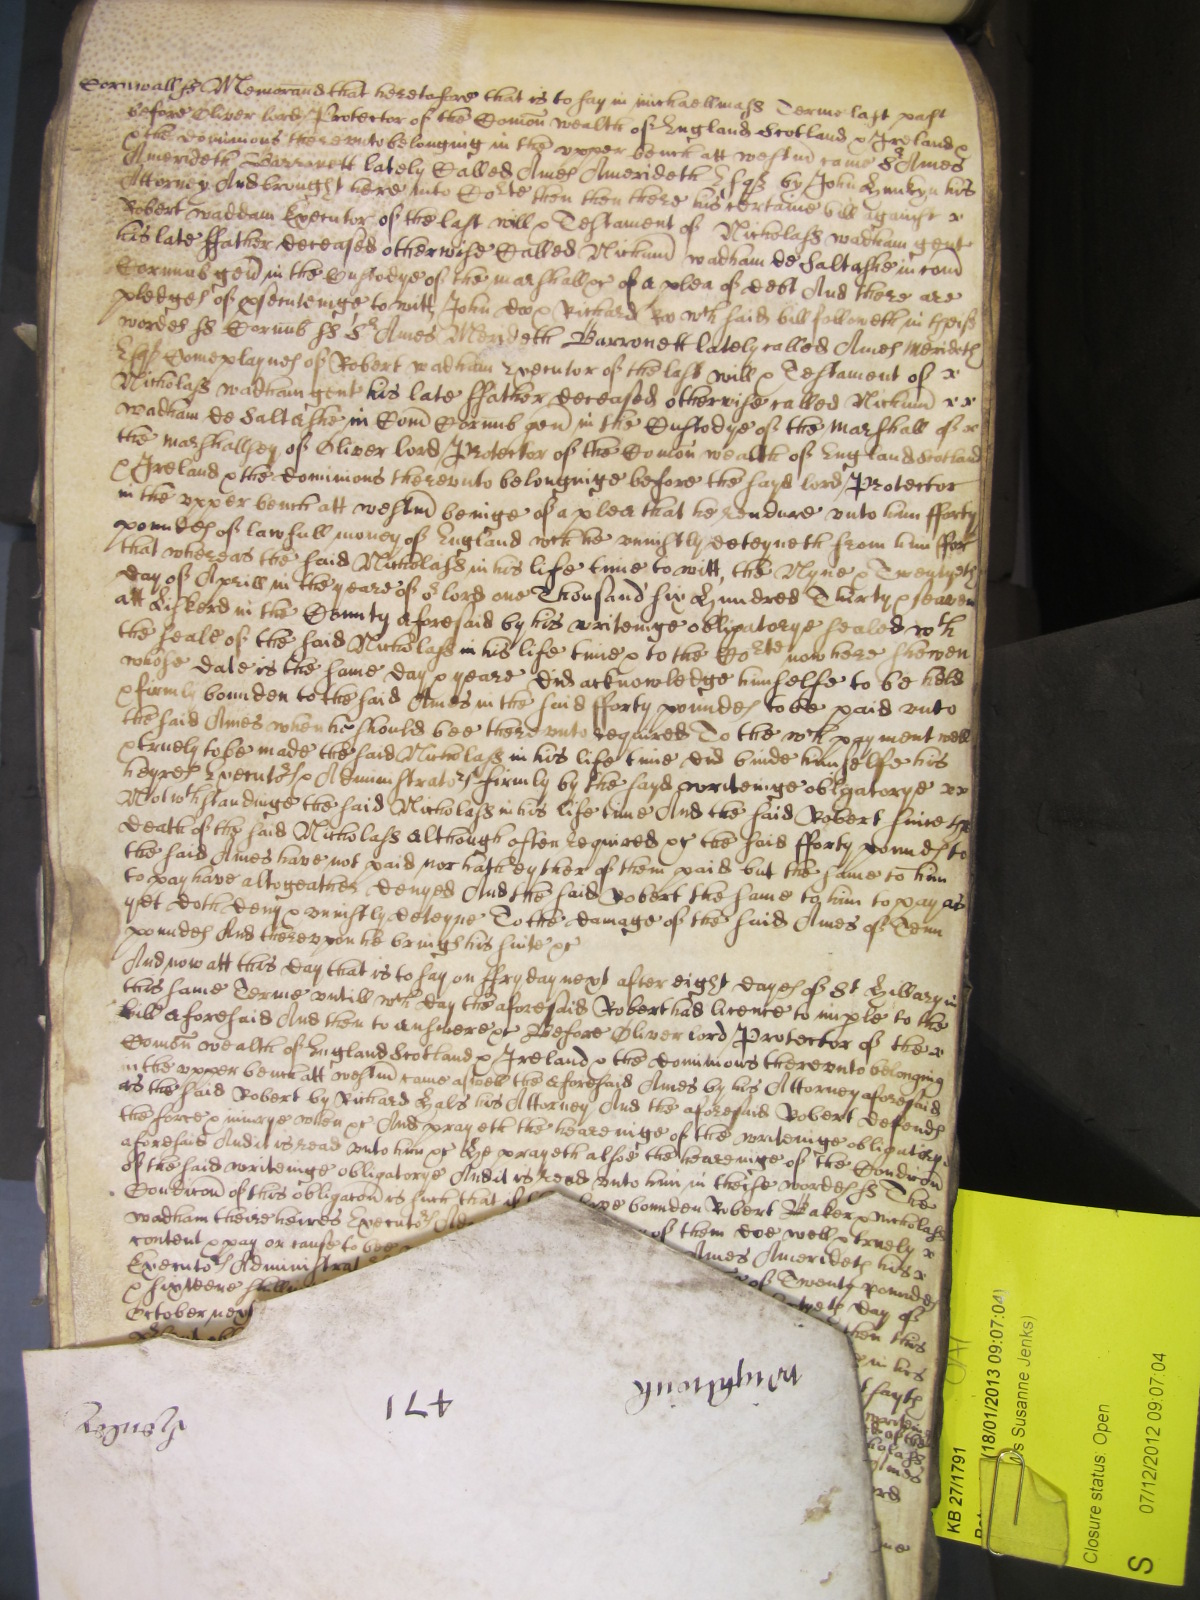 Cornwall ss Memorand that heretofore that is to say in michaellmass Terme last past
before Oliver lord Protector of the Comon wealth of England Scotland & Ireland &
the dominions thereunto belonging in the upper bench att westm came Sr Ames
Amerideth Barronett lately Called Ames Amerideth Esqr by John his
Attorney And brought here into Corte then there his certaine bill against x
Robert wadham Executor of the last will & Testament of Nicholass wadham gent
his late ffather deceased otherwise Called Nichum wadham de Saltashe in com
Cornub gen in the Custodye of the marshall &c of a plea of debt And there are
pledges of psecuteinge to witt John doo & Richard roo wch said bill followeth in theise
wordes ss Cornub ss Sr Ames Merideth Barronett lately called Ames Merideth
Esqr Complaynes of Robert wadham Executor of the last will & Testament of x
Nicholass wadham gent his late ffather deceased otherwise called Nichum x x
wadham de Saltashe in Com Cornub gen in the Custodye of the marshall of x
the marshallsey of Oliver lord Protector of the Comon wealth of England Scotland
& Ireland & the dominions thereunto belonginge before the sayd lord Protector
in the upper bench att westm beinge of a plea that he rendure unto him fforty
poundes of lawfull money of England wch he uniustly deteyneth from him ffor
that whereas the said Nicholass in his life time to witt the Nyne & Twentyeth
day of Aprill in the yeare of or lord one Thousand six Hundred Thirty & seaven
att Liskerd in the County aforesaid by his writeinge obligatorye sealed wth
the seale of the said Nicholass in his life time & to the Corte now here shewen
whose date is the same day & yeare did acknowledge himselfe to be held
& firmly bounden to the said Ames in the said fforty poundes to be paid unto
the said Ames when he should bee thereunto required To the wch payment well
& truely to be made the said Nicholass in his life time did binde himselfe his
heyres Executors & Administrators firmly by the sayd writeinge obligatorye xx
Notwthstandinge the said Nicholass in his life time And the said Robert since the
death of the said Nicholass although often required &c the said fforty poundes to
the said Ames have not paid nor hath eyther of them paid but the same to him
to pay have altogeather denyed And the said Robert the same to him to pay as
yet doth deny & uniustly deteyne To the damage of the said Ames of Tenn
poundes And thereupon he brings his suite &c
And now att this day that is to say on ffryday next after eight dayes of St Hillary in
this same Terme untill wch day the aforesaid Robert had licence to imple to the
bill aforesaid And then to answere &c Before Oliver lord Protector of the x
Comon wealth of England Scotland & Ireland & the dominions thereunto belonging
in the upper bench att westm came aswell the aforesaid Ames by his Attorney aforesaid
as the said Robert by Richard Hals his Attorney And the aforesaid Robert defends
the force & iniurye when &c And prayeth the heareinge of the writeinge obligatorye
aforesaid And it is read unto him &c He prayeth alsoe the heareinge of the Condicon
of the said writeinge obligatorye And it is read unto him in theise wordes ss The
Condicon of this obligacon is such that if bounden Robert Baker & Nicholass
wadham theire heires Executors of them doe well & truely x
content & pay or cause to bee Ames Amerideth his x
Executors Administrat of Twenty poundes
& sixteene day of
October next then this
in his
sayth
Ames
471
KB 27/1791
(18/01/2013 09:07:04)
s Susanne Jenks)
Closure status: Open
S 07/12/2012 09:07:04